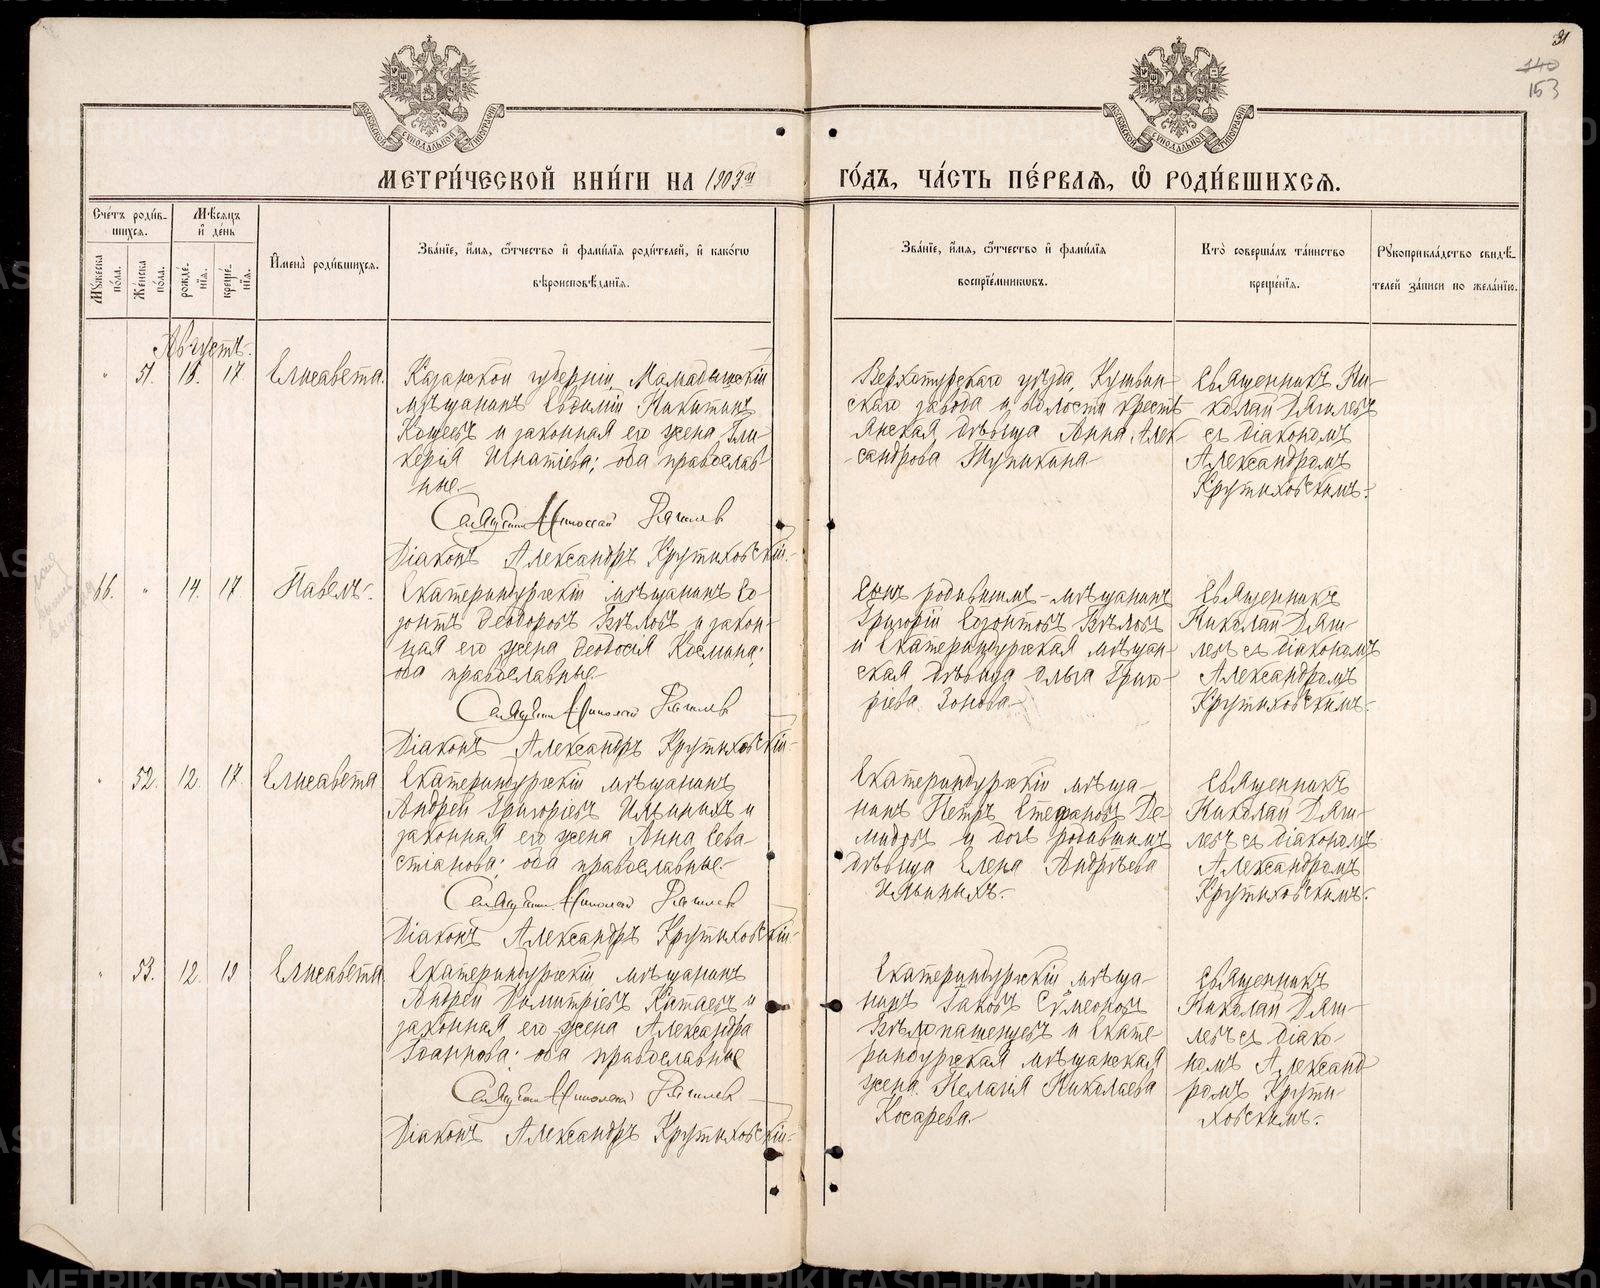 31
140
153
МЕТРИ́ЧЕСКОЙ КНИ́ГИ НА 1903й
ГО́ДЪ, ЧА́СТЬ ПЕ́РВАѦ, Ѡ РОДИ́ВШИХСѦ.
Сче́тъ роди́в-
шихсѧ.
Мꙋ́жеска
по́ла.
Же́нска
по́ла.
Мѣ́сѧцъ
и҆ де́нь
рожде́-
нїѧ.
креще́-
нїѧ.
И҆мена̀ роди́вшихсѧ.
Зва́нїе, и҆́мѧ, ѻ҆́тчество и҆ фами́лїѧ роди́телей, и҆ како́гѡ
вѣроисповѣ́данїѧ.
Зва́нїе, и҆́мѧ, ѻ҆́тчество и҆ фами́лїѧ
воспрїе́мникѡвъ.
Кто̀ соверша́лъ та́инство
креще́нїѧ.
Рꙋкоприкла́дство свидѣ́-
телей за́писи по жела́нїю.
Августъ.
" 51. 16. 17. Елисавета.
Казанской губерніи, Мамадышскій
мѣщанинъ Евдокій Никитинъ
Кощеевъ и законная его жена Гли-
керія Игнатіева; оба православ-
ные.
Священникъ Николай Дягилев
Діаконъ Александръ Крутиховскій.
Верхотурскаго уѣзда, Кушвин-
скаго завода и волости крестъ-
янская дѣвица Анна Алек-
сандрова Тупикина
Священникъ Ни-
колай Дягилевъ
съ діакономъ
Александромъ
Крутиховскимъ.
66. " 14. 17 Павелъ.
Екатеринбургскій мѣщанинъ Ео-
зонтъ Ѳеодоровъ Бѣловъ и закон-
ная его жена Ѳеодосія Космина;
оба православные
Священникъ Николай Дягилев
Діаконъ Александръ Крутиховскій.
Сынъ родившихъ - мѣщанинъ
Григорій Созонтовъ Бѣловъ
и Екатеринбургская мѣщан-
ская дѣвица Ольга Григо-
ріева Зонова
Священникъ
Николай Дяги-
левъ съ діакономъ
Александромъ
Крутиховскимъ.
" 52. 12. 17 Елисавета
Екатеринбургскій мѣщанинъ
Андрей Григоріевъ Ильиныхъ и
законная его жена Анна Сева-
стіанова; оба православные.
Священникъ Николай Дягилев
Діаконъ Александръ Крутиховскій.
Екатеринбургскій мѣща-
нинъ Петръ Стефановъ Де-
мидовъ и дочь родившихъ
дѣвица Елена Андреева
Ильиныхъ.
Священникъ
Николай Дяги-
левъ съ діакономъ
Александромъ
Крутиховскимъ.
" 53. 12. 18 Елисавета
Екатеринбургскій мѣщанинъ
Андрей Димитріевъ Китаевъ и
законная его жена Александра
Іоаннова; оба православные
Священникъ Николай Дягилев
Діаконъ Александръ Крутиховскій.
Екатеринбургскій мѣща-
нинъ Іаковъ Сѵмеоновъ
Бѣлопашенцевъ и Екате-
ринбургская мѣщанская
жена Пелагія Николаева
Косарева.
Священникъ
Николай Дяги-
левъ съ діако-
номъ Александ-
ромъ Крути-
ховскимъ.
METRIKI.GASO-URAL.RU